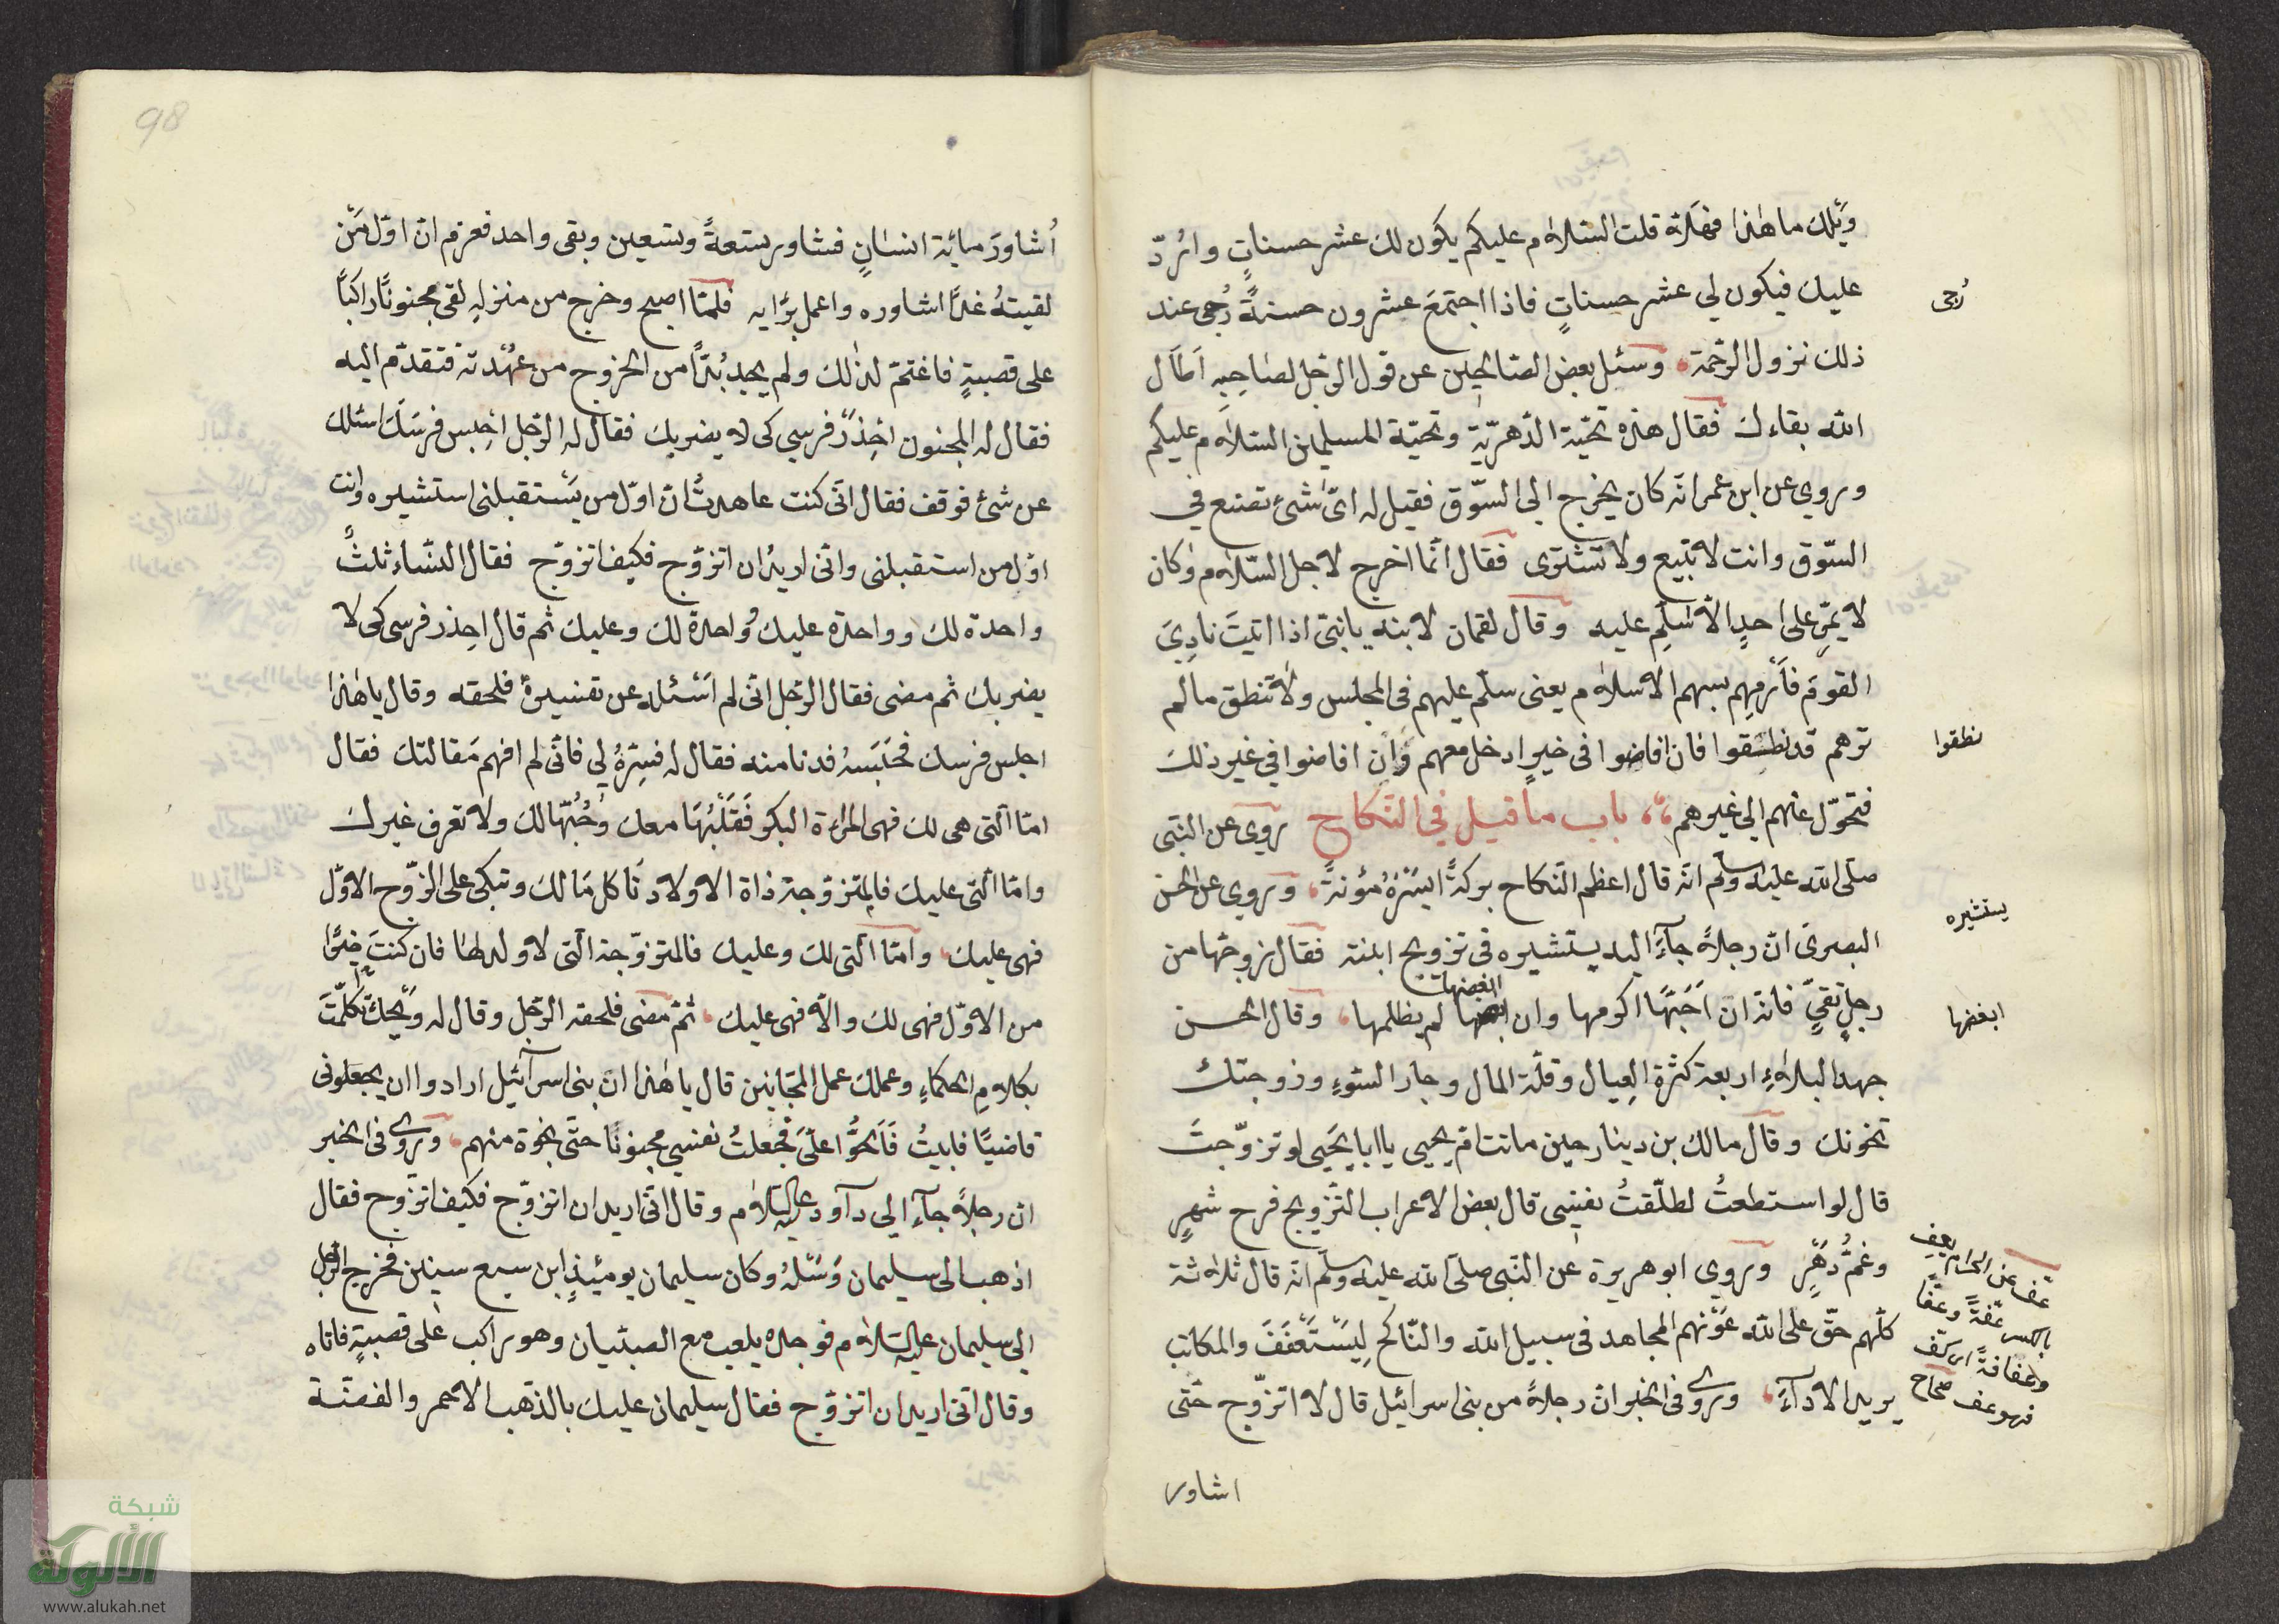 ويلك ما هٰذا فهلاّ قلت السّلام عليكم يكون لك عشر حسناتٍ واردّ
عليك فيكون لي عشر حسناتٍ فاذا اجتمعَ عشرون حسنةً رُجى عند
رُجى
ذلك نزول الرّحمة وسئل بعض الصّالحين عن قول الرّجل لصاحِبِهِ اَطَال
الله بقاءك فقال هذه تحيّة الدّهريّة وتحيّة المسلمين السّلام عليكم
وروي عن ابن عمر انّه كان يخرج الى السّوق فقيل له ايّ شئ تصنع في
السّوق وانت لا تبيع ولا تشترى فقال انّما اخرج لاجل السّلام وكان
لا يمرّ على احدٍ الاّ سَلّم عليه وقال لقمان لابنه يا بنيّ اذا اتيتَ نادِيَ
القوم فاَرمِهِم بسهم الاسلام يعنى سلّم عليهم فى المجلس ولا تنطق ما لم
ترهم قد نطقوا فان افاضوا فى خيرٍ ادخل معهم وَان افاضوا في غير ذلك
نطقوا
فتحوّل عنهم الى غيرهم باب ما قيل في النّكاح روي عن النّبى
صلّى الله عليه وسلّم انّه قال اعظم النّكاح بركةً ايسَرُهُ مؤنةً وروي عن الحسن
البصرىّ انّ رجلاً جآءَ اليه يستشيره فى تزويج ابنته فقال زوجّها من
يستشيره
رجلٍ تقيٍّ فانّه ان اَحَبّهَا اكرمها وان ابغضها لم يظلمها وقال الحسن
ابغضها
ابغضها
جهد البلاءِ اربعة كثرة العِيال وقلّة المال وجار السّوءِ وزوجتك
تخونك وقال مالك بن دينار حين ماتت امّ يحيى يا ابا يحَيى لو تزوّجتَ
قال لو استطعتُ لطلّقتُ نفسِى قال بعض الاعراب التّزويج فرح شهرٍ
وغمُّ دَهرٍ وروي ابو هريرة عن النّبى صلّى الله عليه وسلّم انّه قال ثلاثة
كلّهم حقّ على الله عَوْنهم المجاهد فى سبيل الله والنّاكح لِيَسْتَعْفَفَ والمكاتب
يريد الاداءَ ورُوي فى الخبر انّ رجلاً من بنى اسرائيل قال لا اتزوّج حتّى
عفّ عن الحرام يعِفّ
بالكسر عفّةً وعفّا
وعفافةً اى كفّ
فهو عف صحاح
اشاور
98
اُشاورَ مايّة انسانٍ فشاور تسعةً وتسعين وبقى واحد فعزم انّ اوّل مَن
لقيتهُ غداً اشاوره واعمل برأيه فلمّا اصبح وخرج من منزلهِ لقى مجنونًا راكبًا
على قصبةٍ فاغتمّ لذٰلك ولم يجد بُدّاً من الخروج من عهْدته فتقدّم اليه
فقال له المجنون احْذَرْ فرسي كى لا يضربك فقال له الرّجل احْبِس فرسَكَ اسئلك
عن شئ فوقف فقال انّى كنت عاهدتُ ان اوّل من يَسْتقبلنى استشيره وانت
اوّل من استقبلنى وانّى اريد ان اتزوّج فكيف اتزوّج فقال النّساء ثلثٌ
واحدة لك وواحدة عليك وواحدة لك وعليك ثم قال احِذر فرسى كى لا
يضربك ثم مضى فقال الرّجل انّى لم اَسْئله عن تفسيرهٔ فلحقه وقال يا هٰذا
احبس فرسك فحَبَسَهُ فدنا منه فقال له فسِّرهُ لى فانّى لم افهم مَقالتك فقال
امّا الّتى هى لك فهى المرأة البكر فَقَلْبُهَا معك وَحُبُّهَا لك ولا تعرف غيرك
وامّا الّتى عليك فالمتزوّجة ذاة الاولاد تَاكل مَالك وتبكى على الزّوج الاوّل
فهى عليك وامّا الّتى لك وعليك فالمتزوّجة الّتى لا ولد لهٰا فان كنتَ خيرًا
من الاوّل فهى لك والاّ فهى عليك ثمّ مضى فلحقه الرّجل وقال له وَيْحكَ تكلّمتَ
بكلامِ الحكماءِ وعملك عمل المجَانين قال يا هٰذا انّ بنى اسرآئيل ارادوا ان يجعلونى
قاضيًا فابيتُ فَاَلحُّوا علىّ فجعلتُ نفسى مجنونًا حتّى نجوة منهم ورُوي فى الخبر
ان رجلاً جآءِ الى دآود عليه السّلام وقال انّى اريد ان اتزوّج فكيف اتزوج فقال
اذهب الى سليمان وَسَئلهُ وكان سليمان يومئِذٍ ابن سبع سنين فخرج الرّجل
الى سليمان عليه السّلام فوجده يلعب مع الصبيان وهو راكب على قصبةٍ فاتاه
وقال انّى اريد ان اتزوّج فقال سليمان عليك بالذّهب الاحمر والفضّة
شبكة
الألوكة
www.alukah.net